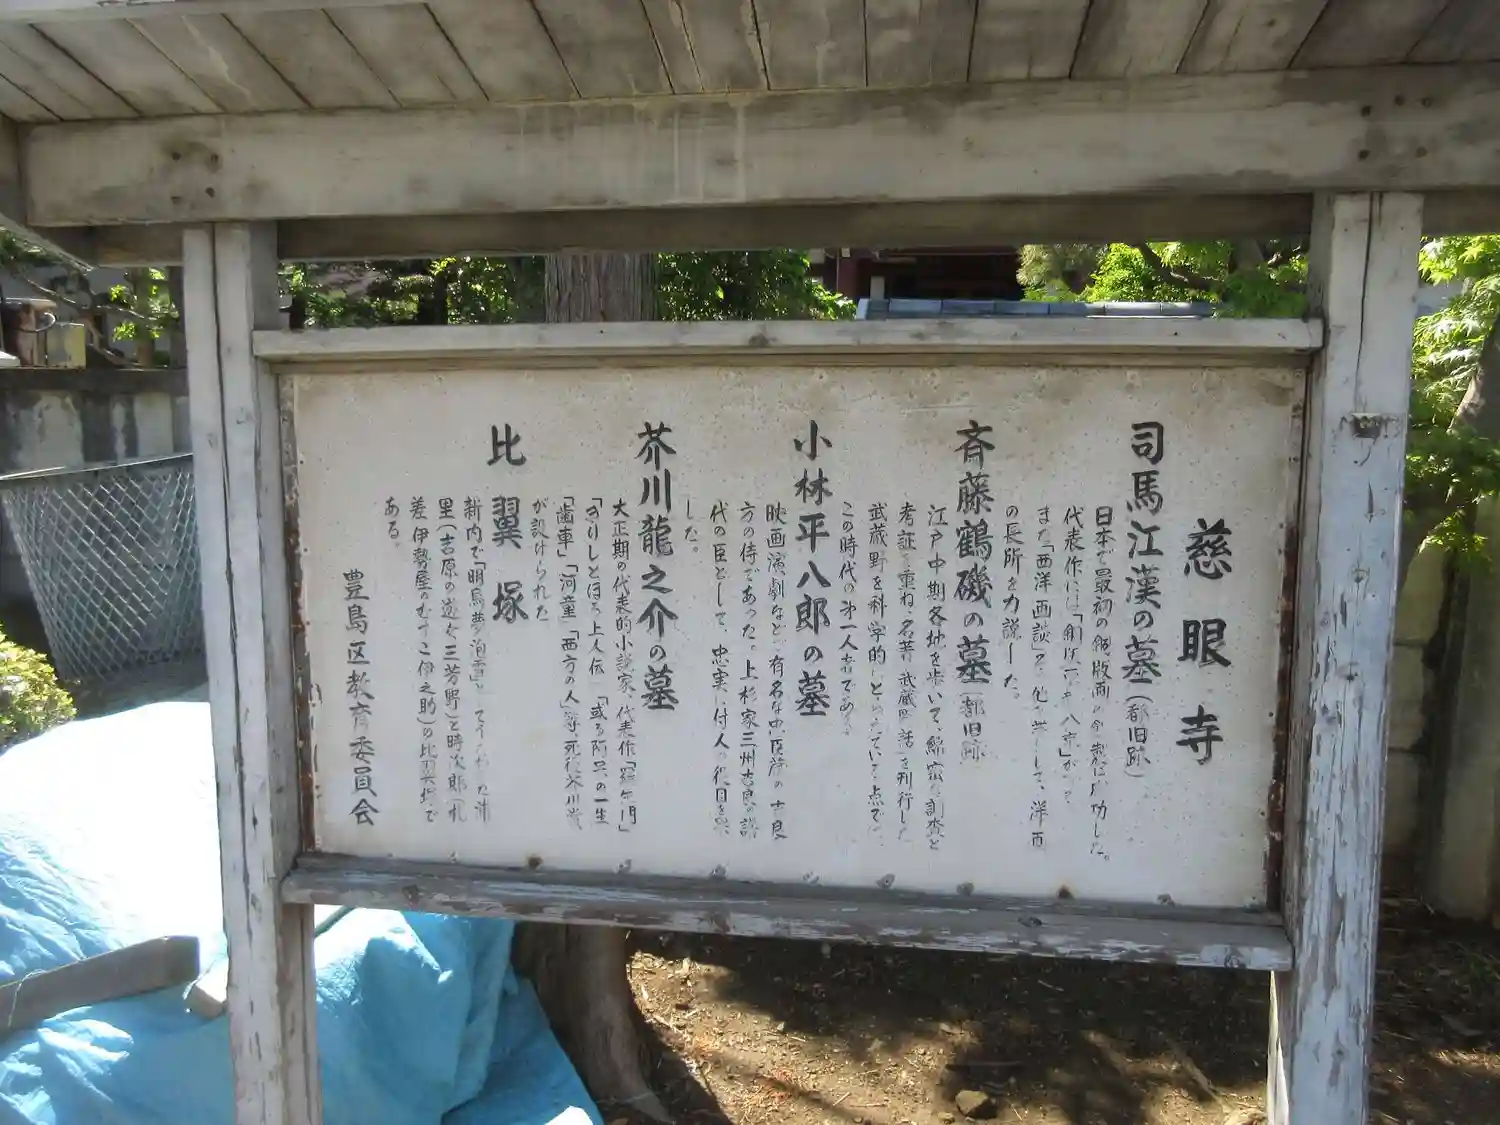 慈眼寺
司馬江漢の墓(都旧跡)
日本で最初の銅版画の創製に成功した。
代表作には
また「西洋画談」を して、洋画
の長所を力説した。
斉藤鶴磯の墓(都旧跡)
江戸中期各地を歩いて、綿密な調査と
考証を重ね、名著武蔵野話を刊行した
武蔵野を科学的にとらえている点では、
この時代の第一人者である。
小林平八郎の墓
映画演劇などで有名な忠臣蔵の吉良
方の侍であった。上杉家三州吉良の譜
代の臣として、忠実に付人の役目を果
した。
芥川龍之介の墓
大正期の代表的小説家、代表作「羅生門」
「きりしとほろ上人伝」「或る阿呆の一生」
「歯車」「河童」「西方の人」等、死後芥川賞
が設けられた
比翼塚
新内で「明烏夢泡雪」と 浦
里(吉原の遊女三芳野)と時次郎(札
差伊勢屋のむすこ伊之助)の比翼塚で
ある。
豊島区教育委員会